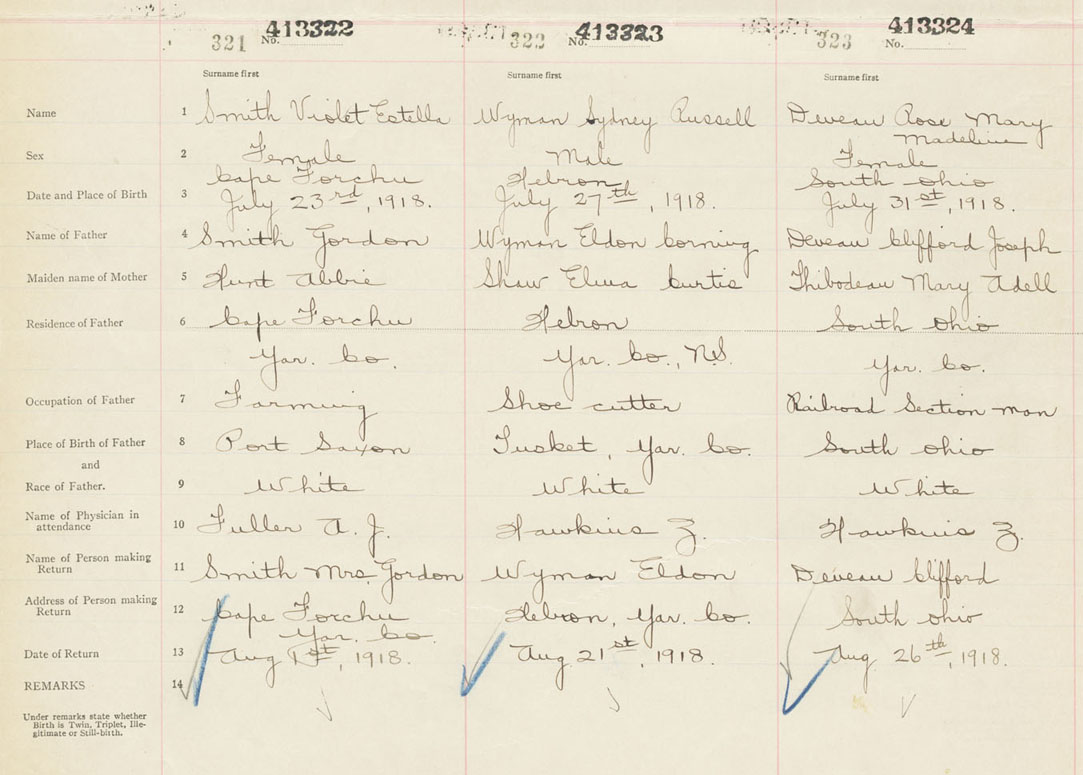 321 No. 413322 322 No. 413323 323 No. 413324
Surname first Surname first Surname first
Name 1 Smith Violet Estella Wyman Sydney Russell Deveau Rose Mary
Madeline
Sex 2 Female Male Female
Cape Forchu Hebron South Ohio
Date and Place of Birth 3 July 23rd, 1918. July 27th, 1918. July 31st, 1918.
Name of Father 4 Smith Gordon Wyman Eldon Corning Deveau Clifford Joseph
Maiden name of Mother 5 Hunt Abbie Shaw Elma Curtis Thibodeau Mary Adell
Residence of Father 6 Cape Forchu Hebron South Ohio
Yar. Co. Yar. Co., N.S. Yar. Co.
Occupation of Father 7 Farming Shoe cutter Railroad Section man
Place of Birth of Father 8 Port Saxon Tusket, Yar. Co. South Ohio
and
Race of Father. 9 White White White
Name of Physician in
attendance 10 Fuller A. J. Hawkins Z. Hawkins Z.
Name of Person making
Return 11 Smith Mrs. Gordon Wyman Eldon Deveau Clifford
Address of Person making
Return 12 Cape Forchu Hebron, Yar. Co. South Ohio
Yar. Co.
Date of Return 13 Aug 1st, 1918. Aug 21st, 1918. Aug 26th, 1918.
REMARKS 14
Under remarks state whether
Birth is Twin, Triplet, Ille-
gitimate or Still-birth.